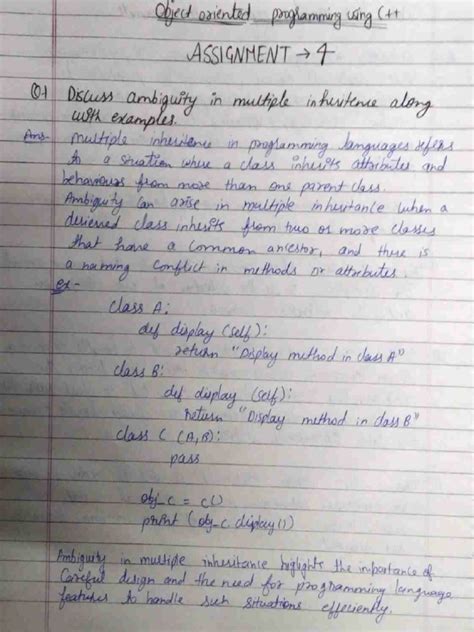 Object oriented programming using C++
ASSIGNMENT → 4
Q.1 Discuss ambiguity in multiple inheritence along
with examples.
Ans- Multiple inheritence in programming languages refers
to a situation where a class inherits attributes and
behaviours from more than one parent class.
Ambiguity can arise in multiple inheritance when a
derieved class inherits from two or more classes
that have a common ancestor, and there is
a naming conflict in methods or attributes.
ex-
class A:
def display (self):
return "Display method in class A"
class B:
def display (self):
return "Display method in class B"
class C (A,B):
pass
obj_c = c()
print (obj_c display())
Ambiguity in multiple inheritance highlights the importance of
careful design and the need for programming language
features to handle such situations effeciently.